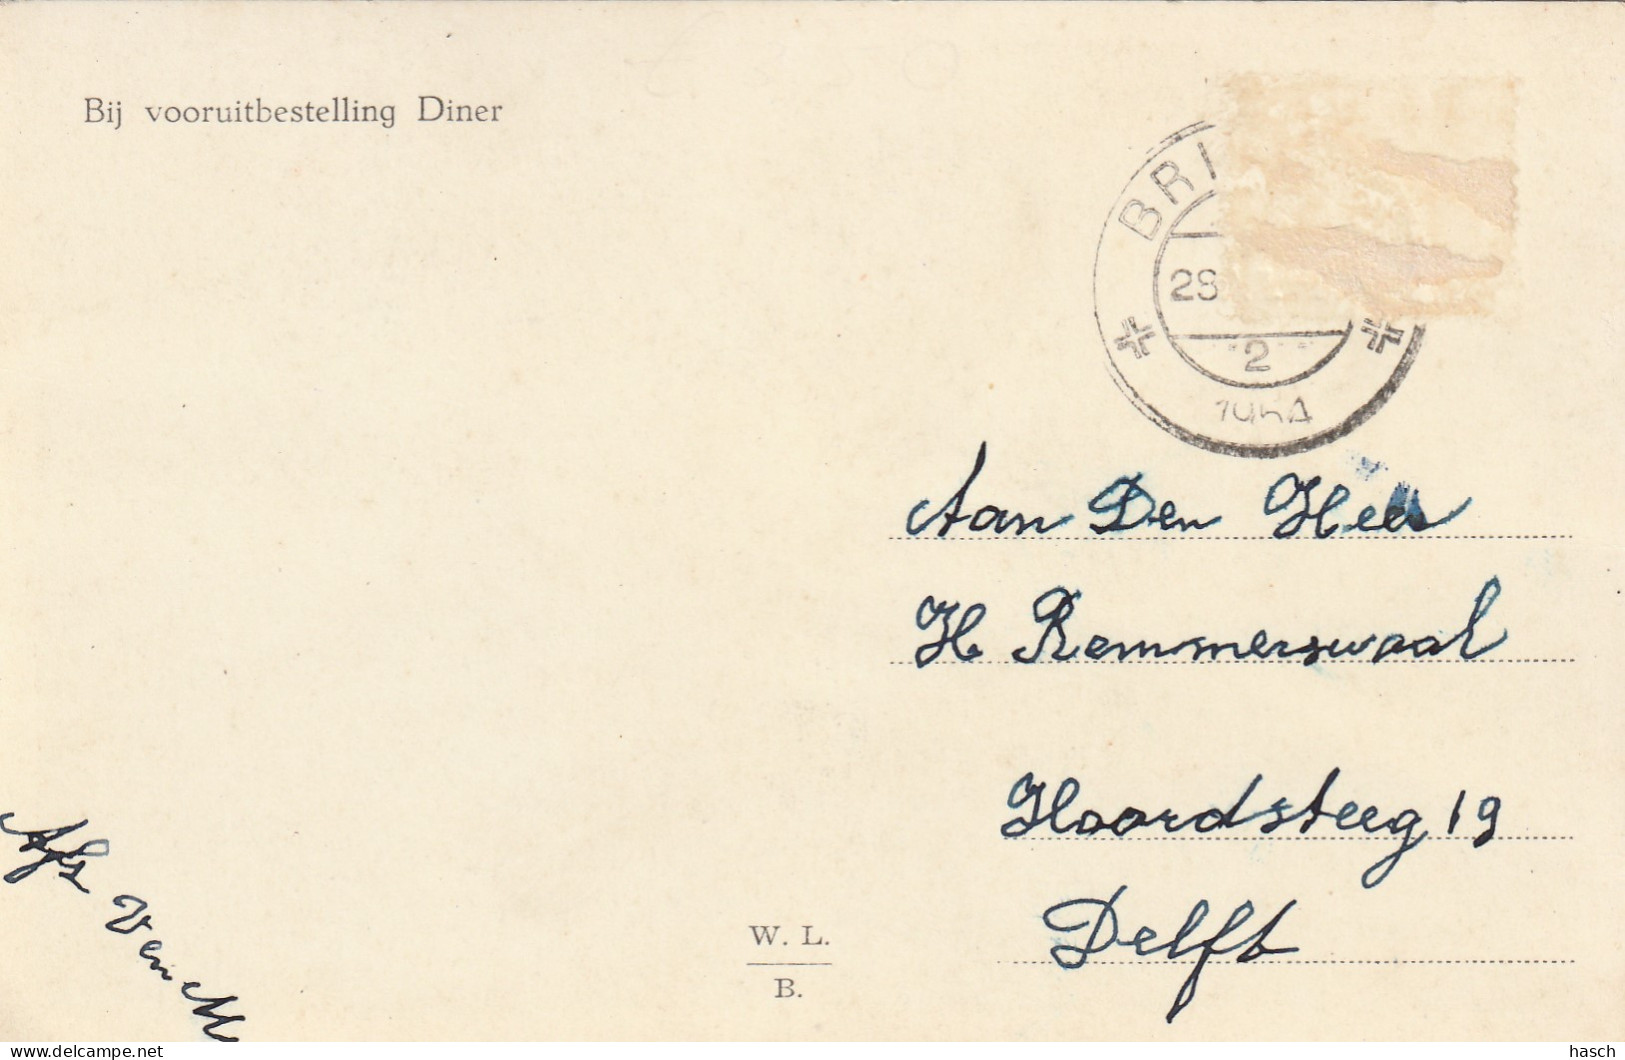 Bij vooruitbestelling Diner
BRI
28
2
1954
Aan Den Heer
H Remmerswaal
Hoordsteeg 19
Delft
Afz V en M
W. L.
B.
www.delcampe.net
hasch